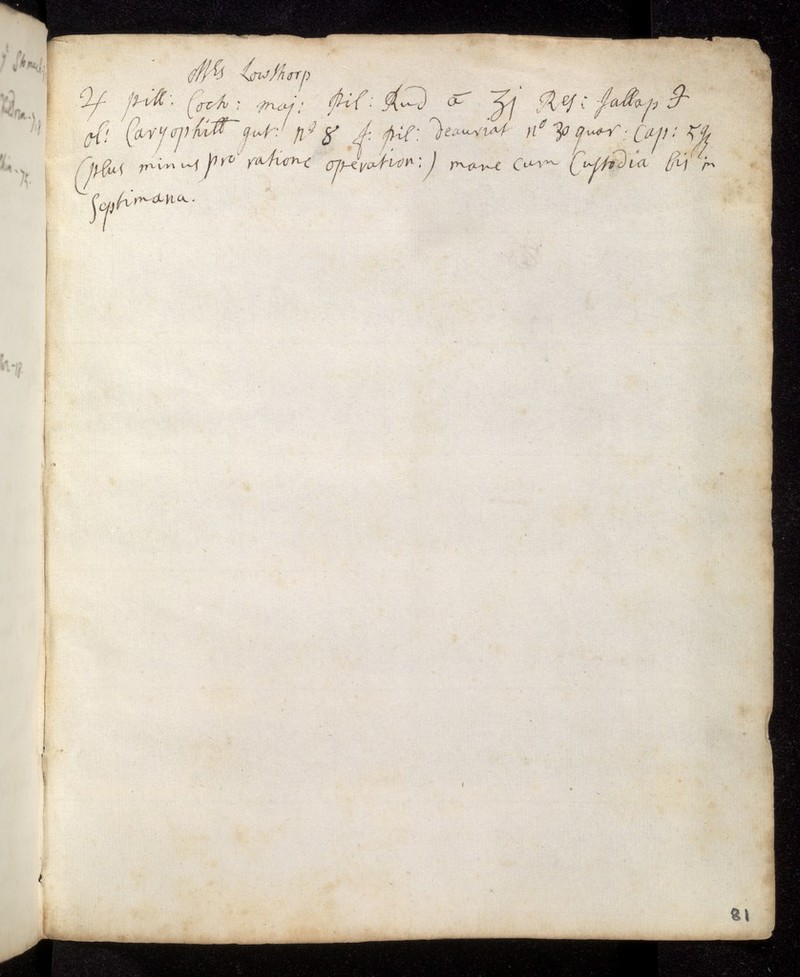 Mrs Lowthorp
♃ pill: Coch: maj: Pil: Rud ā ʒj Res: Jallap
ol: Caryophill gut: no 8 f: pil: deauriat no 30 quar: Cap: 5
(plus minus pro ratione operation:) mane cum Custodia bis in
Septimana.
81